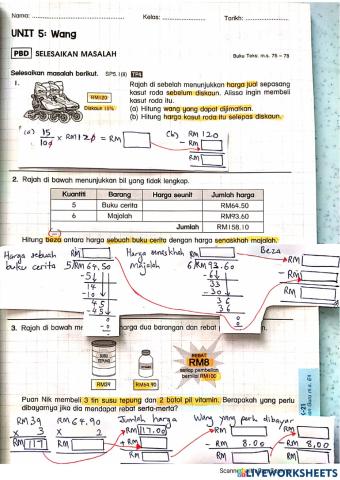 Nama: Kelas: Tarikh:
UNIT 5: Wang
PBD SELESAIKAN MASALAH
Buku Teks: m.s. 75 – 78
Selesaikan masalah berikut. SP5.1(ii) TP4
1. Rajah di sebelah menunjukkan harga jual sepasang
kasut roda sebelum diskaun. Alissa ingin membeli
kasut roda itu.
(a) Hitung wang yang dapat dijimatkan.
(b) Hitung harga kasut roda itu selepas diskaun.
RM120
Diskaun 15%
(a) 15/100 × RM120 = RM
(b) RM 120
- RM
RM
2. Rajah di bawah menunjukkan bil yang tidak lengkap.
Kuantiti Barang Harga seunit Jumlah harga
5 Buku cerita RM64.50
6 Majalah RM93.60
Jumlah RM158.10
Hitung beza antara harga sebuah buku cerita dengan harga senaskhah majalah.
Harga sebuah buku cerita
RM
5 RM 64.50
-5
14
-10
45
-45
0
-0
Harga senaskhah Majalah
RM
6 RM 93.60
-6
33
-30
36
36
0
Beza
RM
- RM
RM
3. Rajah di bawah harga dua barangan dan rebat
SUSU TEPUNG
RM39
RM64.90
REBAT
RM8
setiap pembelian
bernilai RM100
Puan Nik membeli 3 tin susu tepung dan 2 botol pil vitamin. Berapakah yang perlu
dibayarnya jika dia mendapat rebat serta-merta?
RM39
x 3
RM117
RM 64.90
x 2
RM
Jumlah harga
RM117.00
+ RM
RM
Wang yang perlu dibayar
RM
- RM 8.00
RM
- RM 8.00
RM
LIVEWORKSHEETS